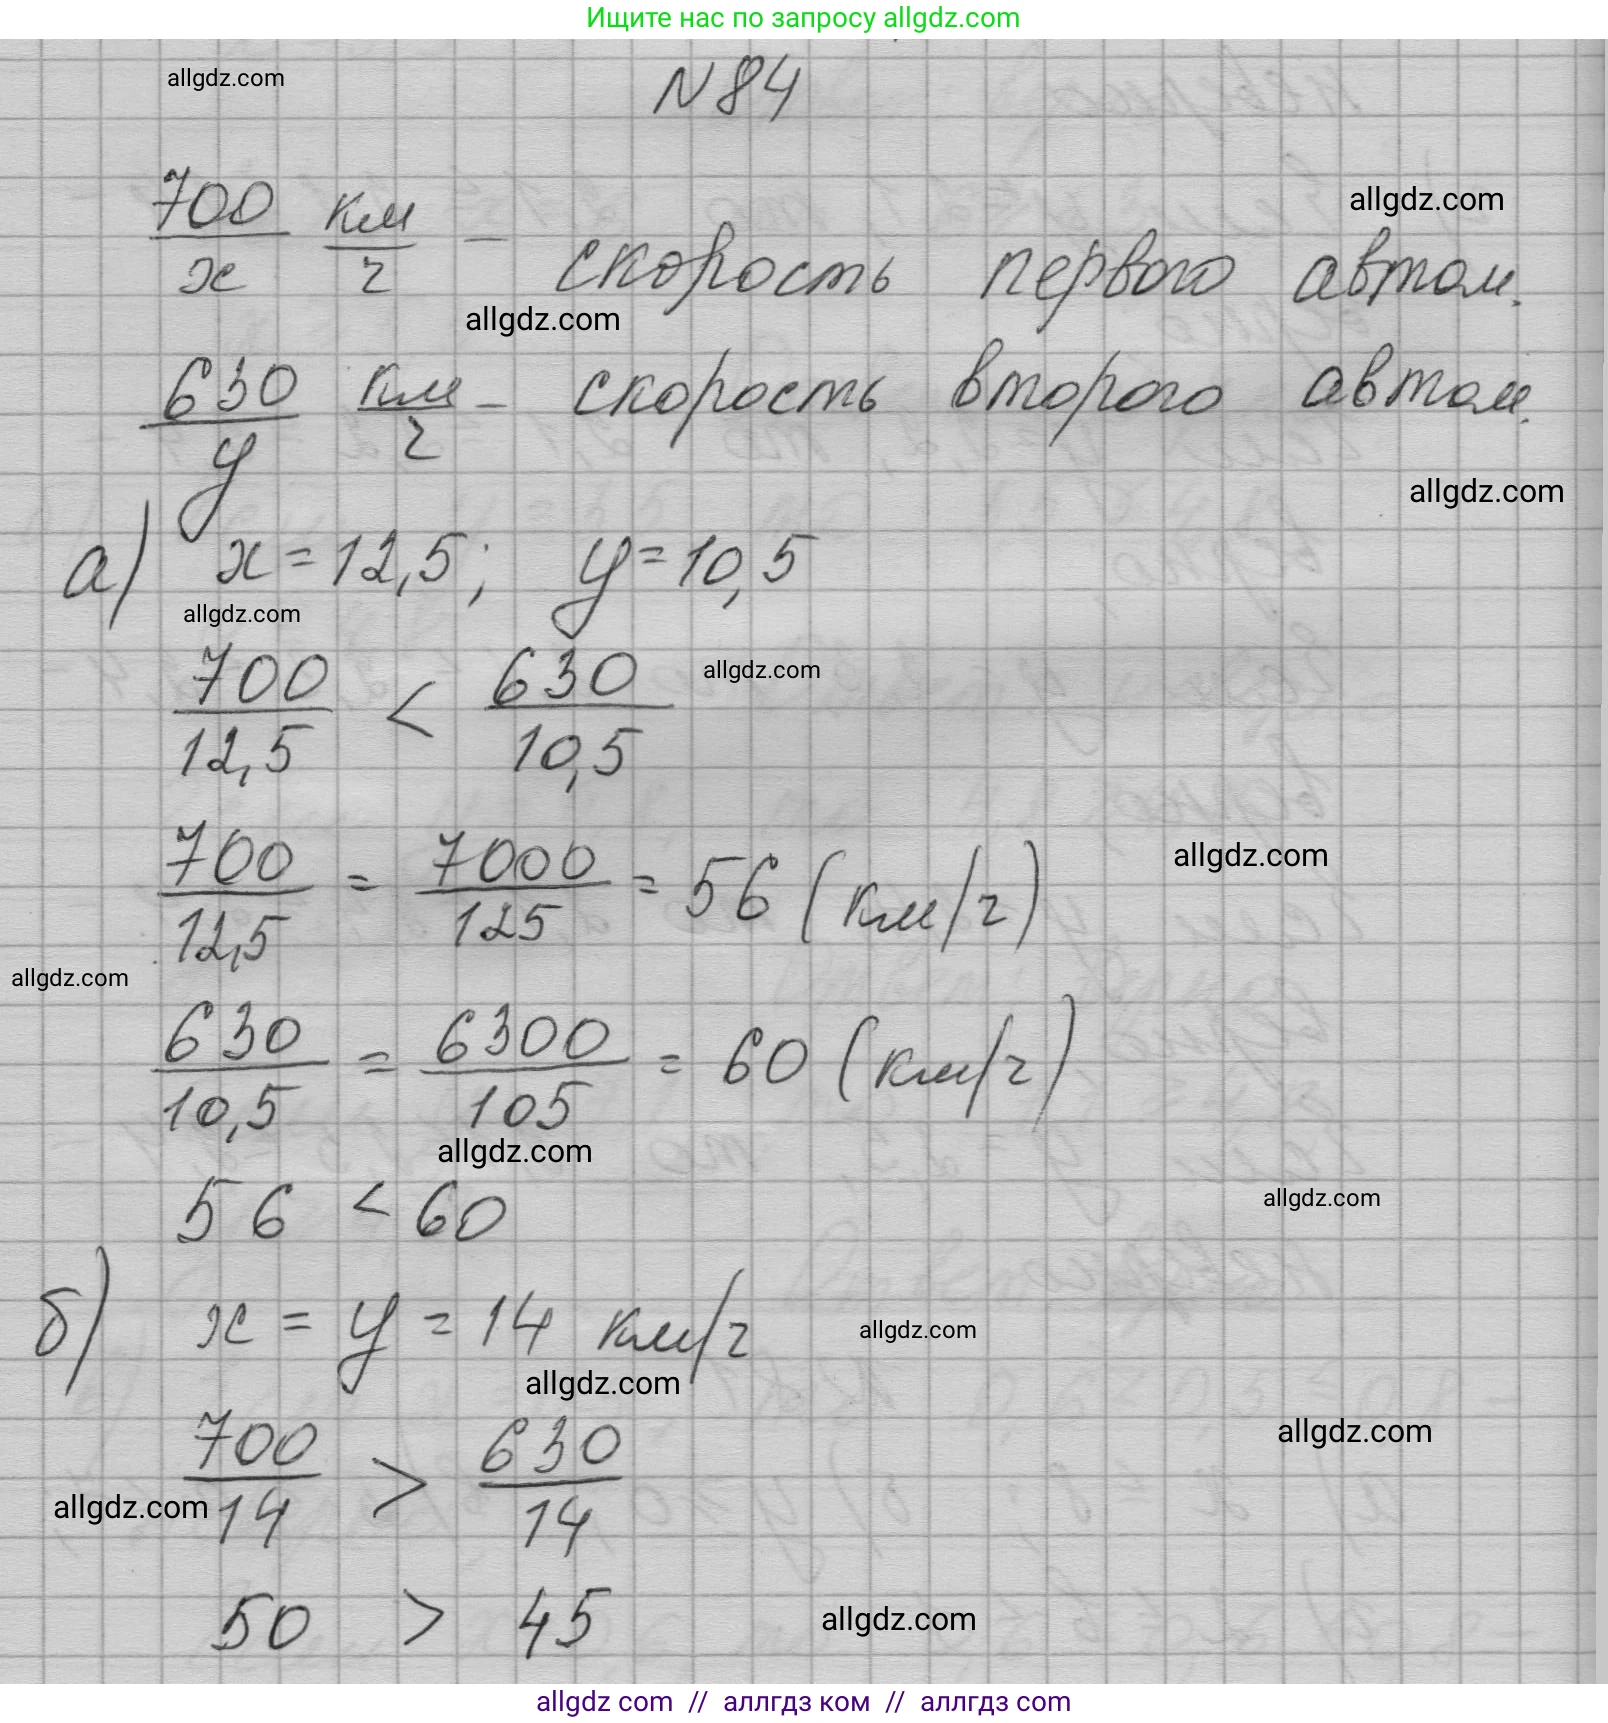 Ищите нас по запросу allgdz.com
allgdz.com
N84
700/x км/ч – скорость первого автом.
allgdz.com
allgdz.com
630/y км/ч – скорость второго автом.
allgdz.com
а) x = 12,5; y = 10,5
allgdz.com
700/12,5 < 630/10,5
allgdz.com
700/12,5 = 7000/125 = 56 (км/ч)
allgdz.com
allgdz.com
630/10,5 = 6300/105 = 60 (км/ч)
allgdz.com
56 < 60
allgdz.com
б) x = y = 14 км/ч
allgdz.com
allgdz.com
700/14 > 630/14
allgdz.com
allgdz.com
50 > 45
allgdz.com
allgdz com // аллгдз ком // аллгдз com